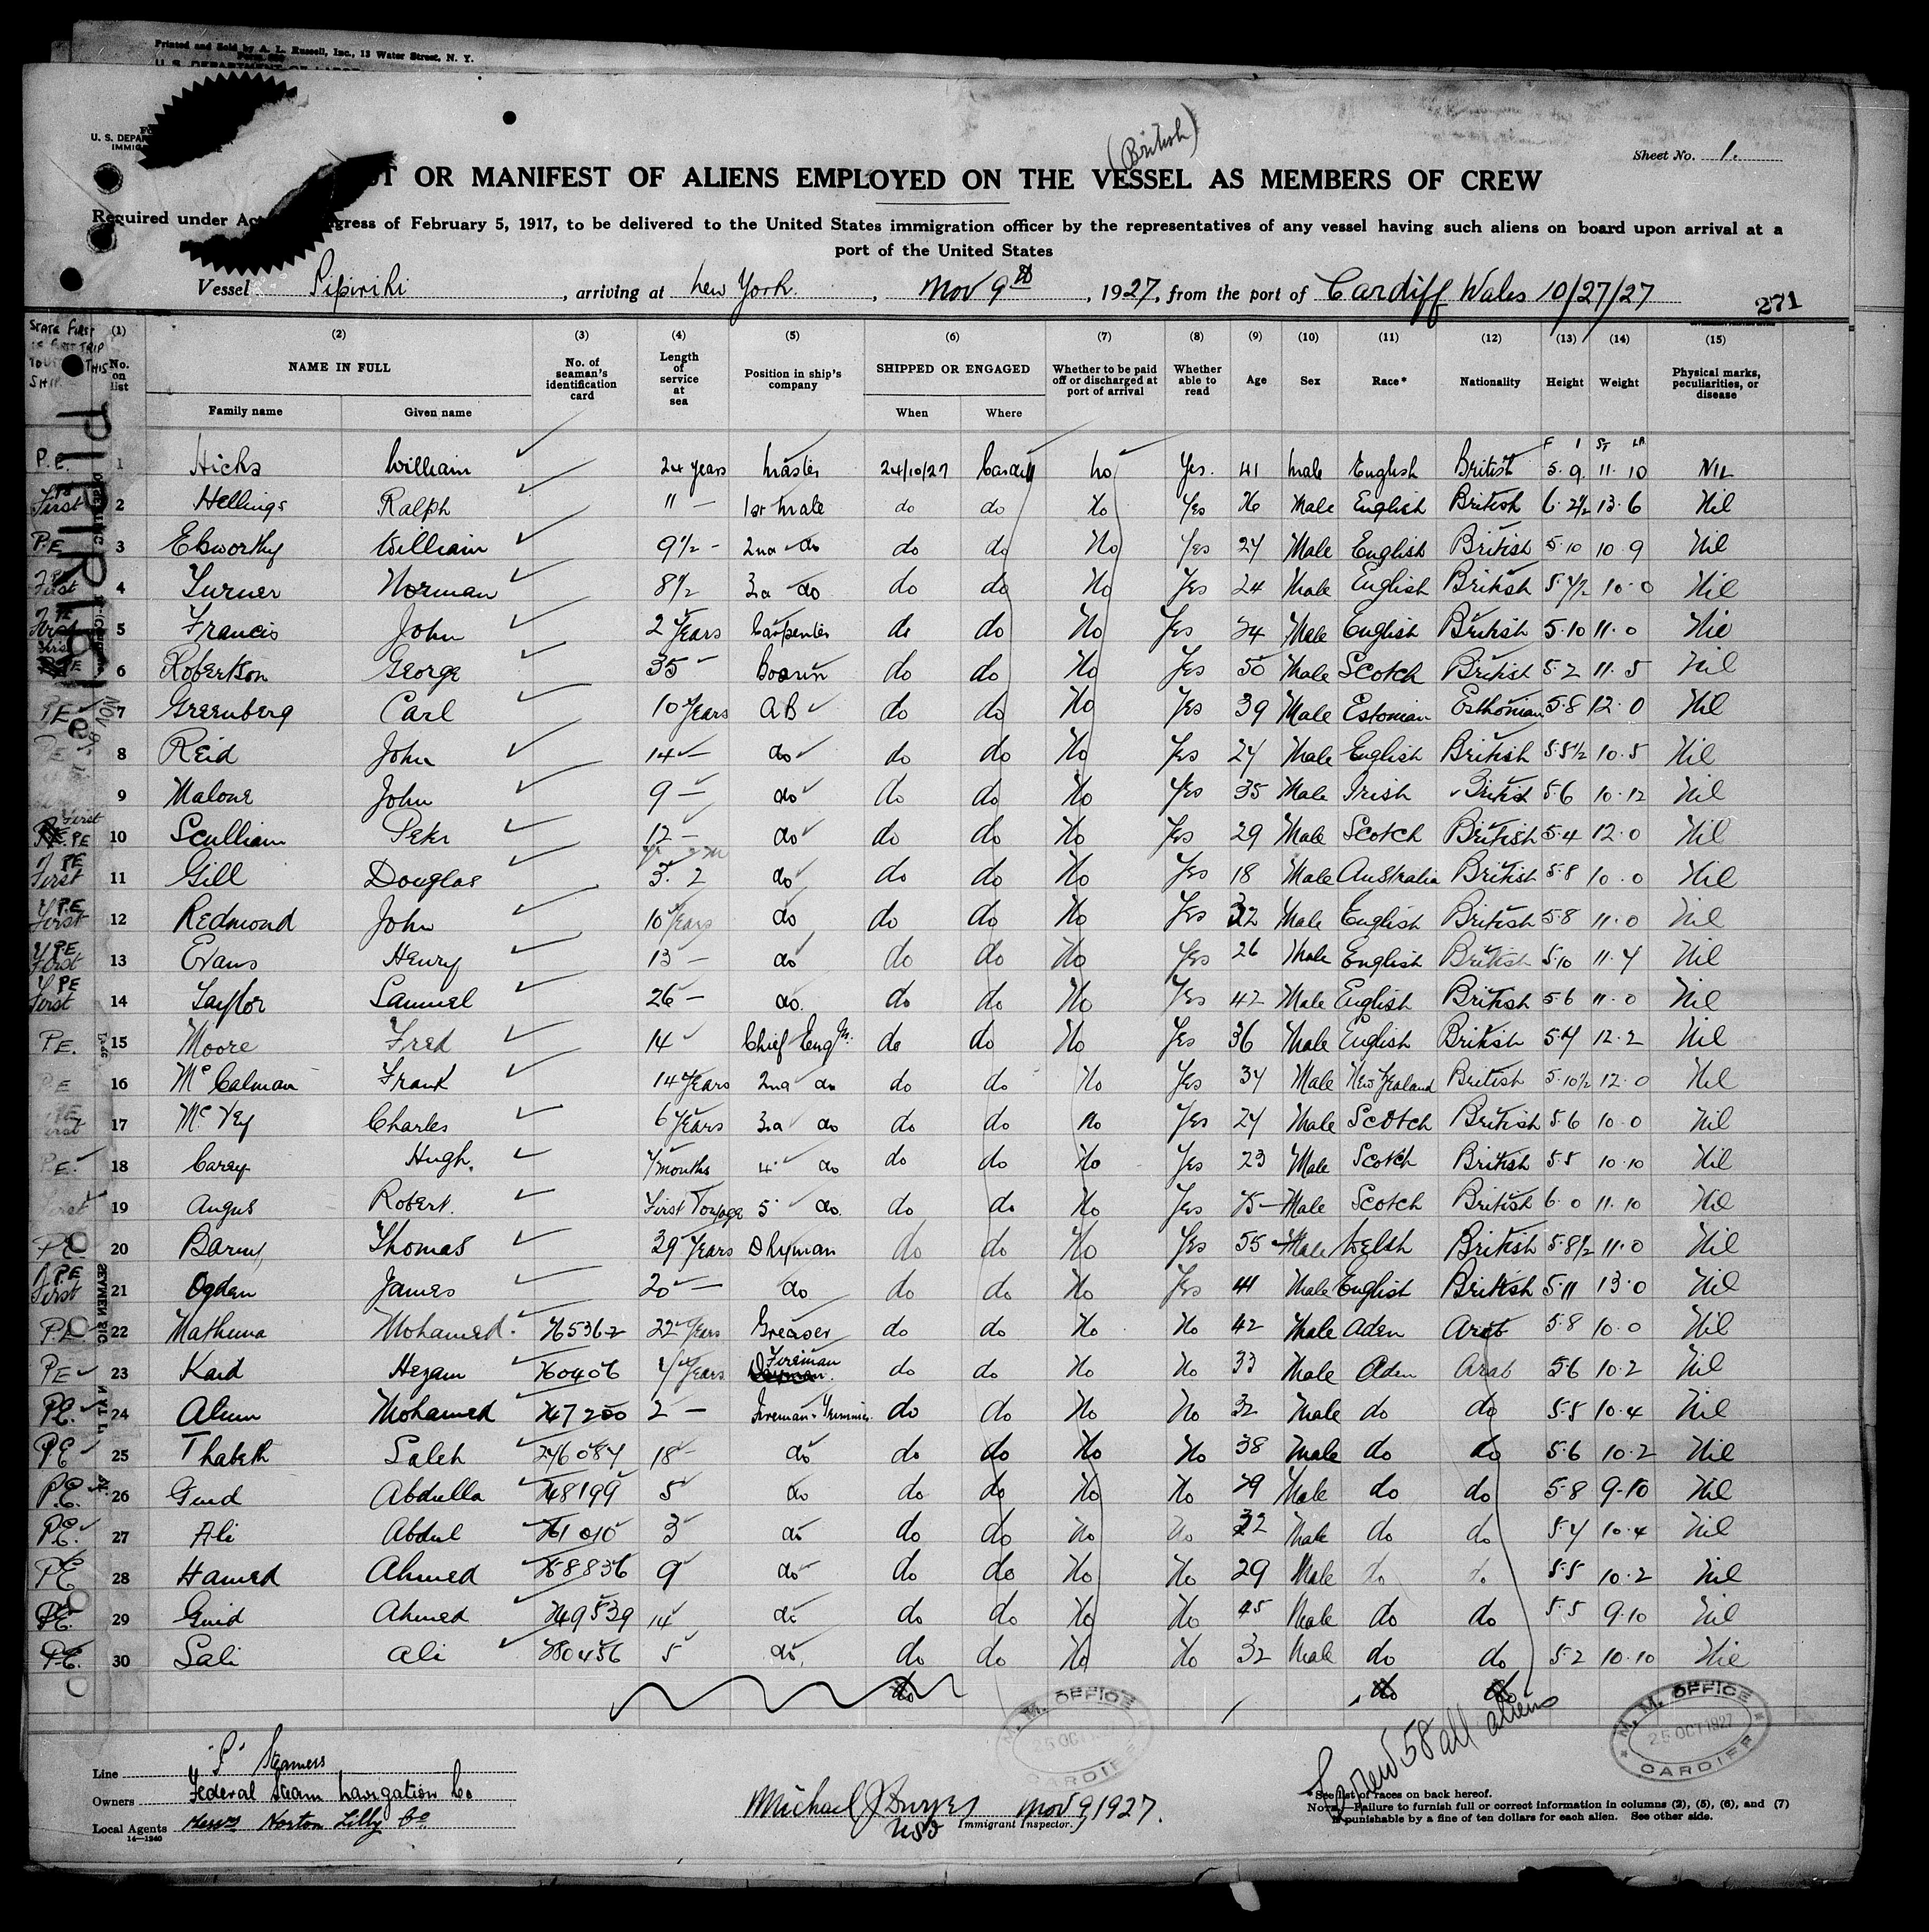 Printed and Sold by A. L. Russell, Inc., 13 Water Street, N. Y.
U. S. DEPARTMENT OF LABOR
U. S. DEPAR
IMMIG
(British)
Sheet No. 1.
ST OR MANIFEST OF ALIENS EMPLOYED ON THE VESSEL AS MEMBERS OF CREW
Required under Act ngress of February 5, 1917, to be delivered to the United States immigration officer by the representatives of any vessel having such aliens on board upon arrival at a
port of the United States
Vessel Pipiriki, arriving at New York, Nov 9th, 1927, from the port of Cardiff Wales 10/27/27
271
(1) (2) (3) (4) (5) (6) (7) (8) (9) (10) (11) (12) (13) (14) (15)
No. on list NAME IN FULL No. of seaman's identification card Length of service at sea Position in ship's company SHIPPED OR ENGAGED Whether to be paid off or discharged at port of arrival Whether able to read Age Sex Race* Nationality Height Weight Physical marks, peculiarities, or disease
Family name Given name When Where
P.E. 1 Hicks William 24 years Master 24/10/27 Cardiff No Yes. 41 Male English British 5. 9. 11. 10 Nil
First 2 Hellings Ralph " - 1st Mate do do No Yes 26 Male English British 6. 2½ 13. 6 Nil
P.E 3 Elsworthy William 9½ - 2nd do do do No Yes 24 Male English British 5.10 10 9 Nil
First 4 Turner Norman 8½ 3rd do do do No Yes 24 Male English British 10.0 Nil
First 5 Francis John 2 Years Carpenter do do No Yes 24 Male English British 5.10 11.0 Nil
6 Robertson George 35 Bosun do do No Yes 50 Male Scotch British 5.2 11.5 Nil
PE 7 Greenberg Carl 10 Years AB do do No Yes 39 Male Estonian Esthonian 5.8 12.0 Nil
PE 8 Reid John 14 - do do do No Yes 24 Male English British 5.5½ 10.5 Nil
9 Malone John 9 - do do do No Yes 35 Male Irish British 5.6 10.12 Nil
First PE 10 Scullian Peter 12 - do do do No Yes 29 Male Scotch British 5.4 12.0 Nil
PE First 11 Gill Douglas 3. 2 do do do No Yes 18 Male Australia British 5.8 10.0 Nil
PE First 12 Redmond John 10 Years do do do No Yes 32 Male English British 5.8 11.0 Nil
PE First 13 Evans Henry 13 - do do do No Yes 26 Male English British 5.10 11.4 Nil
PE First 14 Taylor Samuel 26 - do. do do No Yes 42 Male English British 5.6 11.0 Nil
PE. 15 Moore Fred 14 Chief Eng do do No Yes 36 Male English British 12.2 Nil
PE 16 McCalman Frank 14 Years 2nd do do do No Yes 34 Male New Zealand British 5.10½ 12.0 Nil
First 17 McVey Charles 6 Years 3rd do do do No Yes 24 Male Scotch British 5.6 10.0 Nil
P.E. 18 Carey Hugh. 7 months 4 do do do No Yes 23 Male Scotch British 5.5 10.10 Nil
First 19 Angus Robert. First Voyage 5 do. do do No Yes 25 Male Scotch British 6.0 11.10 Nil
P.E. 20 Thomas 39 Years Dkyman do do No Yes 55 Male Welsh British 5.8½ 11.0 Nil
PE First 21 Ogden James 20 - do do do No Yes 41 Male English British 5.11 13.0 Nil
P.E. 22 Mathena Mohamed. 765362 22 Years Greaser do do No No 42 Male Aden Arab 5.8 10.0 Nil
PE 23 Kaid Hezam 760406 Years Fireman do do No No 33 Male Aden Arab 5.6 10.2 Nil
PE. 24 Alum Mohamed 747200 2 - Fireman & Trimmer do do No No 32 Male do do 5.5 10.4 Nil
PE 25 Thabeth Saleh 746084 18 - do do do No No 38 Male do do 5.6 10.2 Nil
P.E. 26 Guid Abdulla 748199 5 do do do No No 29 Male do do 5.8 9-10 Nil
PE. 27 Ali Abdul 761010 3 do do do No No 32 Male do do 5.4 10.4 Nil
PE 28 Hamed Ahmed 768836 9 do do do No No 29 Male do do 5.5 10.2 Nil
PE. 29 Guid Ahmed 749539 14 do do do No No 45 Male do do 5.5 9.10 Nil
P.E. 30 Sali Ali 780456 5 do do do No No 32 Male do do 5.2 10.10 Nil
do do do
M. M. OFFICE 25 OCT 1927 CARDIFF
M. M. OFFICE 25 OCT 1927 CARDIFF
58 all aliens
Line "P" Steamers
Owners Federal Steam Navigation Co
Local Agents Messrs Norton Lilly Co
14-1240
Michael J Nov 9, 1927.
Immigrant Inspector.
*See list of races on back hereof.
NOTE.—Failure to furnish full or correct information in columns (2), (5), (6), and (7)
is punishable by a fine of ten dollars for each alien. See other side.